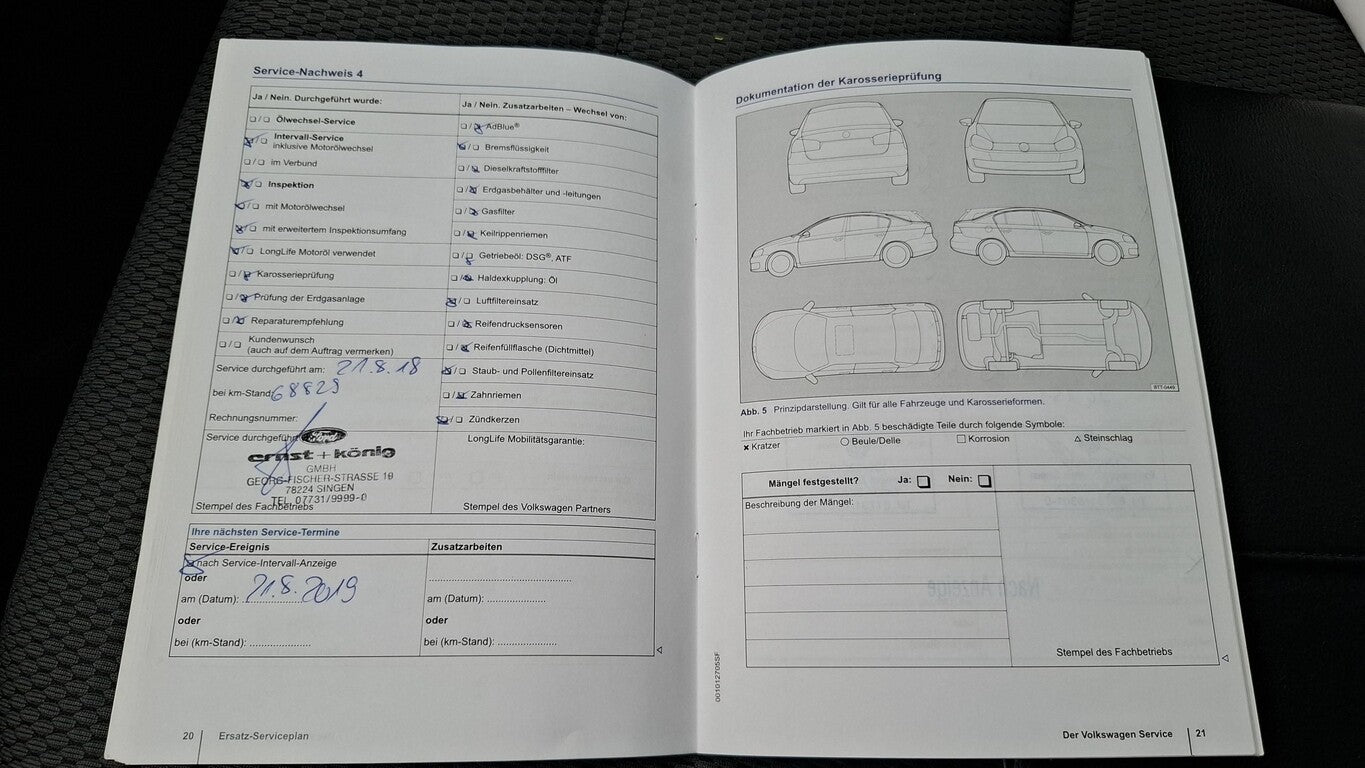 Service-Nachweis 4
Ja / Nein. Durchgeführt wurde:
❏/❏ Ölwechsel-Service
❏/❏ Intervall-Service
inklusive Motorölwechsel
❏/❏ im Verbund
❏/❏ Inspektion
❏/❏ mit Motorölwechsel
❏/❏ mit erweitertem Inspektionsumfang
❏/❏ LongLife Motoröl verwendet
❏/❏ Karosserieprüfung
❏/❏ Prüfung der Erdgasanlage
❏/❏ Reparaturempfehlung
❏/❏ Kundenwunsch
(auch auf dem Auftrag vermerken)
Service durchgeführt am: 21.8.18
bei km-Stand: 68829
Rechnungsnummer:
Service durchgeführt
Ford
ernst + könig
GMBH
GEORG-FISCHER-STRASSE 19
78224 SINGEN
TEL. 07731/9999-0
Stempel des Fachbetriebs
Ja / Nein. Zusatzarbeiten – Wechsel von:
❏/❏ AdBlue®
❏/❏ Bremsflüssigkeit
❏/❏ Dieselkraftstofffilter
❏/❏ Erdgasbehälter und -leitungen
❏/❏ Gasfilter
❏/❏ Keilrippenriemen
❏/❏ Getriebeöl: DSG®, ATF
❏/❏ Haldexkupplung: Öl
❏/❏ Luftfiltereinsatz
❏/❏ Reifendrucksensoren
❏/❏ Reifenfüllflasche (Dichtmittel)
❏/❏ Staub- und Pollenfiltereinsatz
❏/❏ Zahnriemen
❏/❏ Zündkerzen
LongLife Mobilitätsgarantie:
Stempel des Volkswagen Partners
Ihre nächsten Service-Termine
Service-Ereignis
nach Service-Intervall-Anzeige
oder
am (Datum): 21.8.2019
oder
bei (km-Stand): .....................
Zusatzarbeiten
.................................................
am (Datum): ....................
oder
bei (km-Stand): ....................
20 Ersatz-Serviceplan
Dokumentation der Karosserieprüfung
BTT-0449
Abb. 5 Prinzipdarstellung. Gilt für alle Fahrzeuge und Karosserieformen.
Ihr Fachbetrieb markiert in Abb. 5 beschädigte Teile durch folgende Symbole:
× Kratzer ○ Beule/Delle □ Korrosion △ Steinschlag
Mängel festgestellt? Ja: ❏ Nein: ❏
Beschreibung der Mängel:
Stempel des Fachbetriebs
001012705SF
Der Volkswagen Service 21